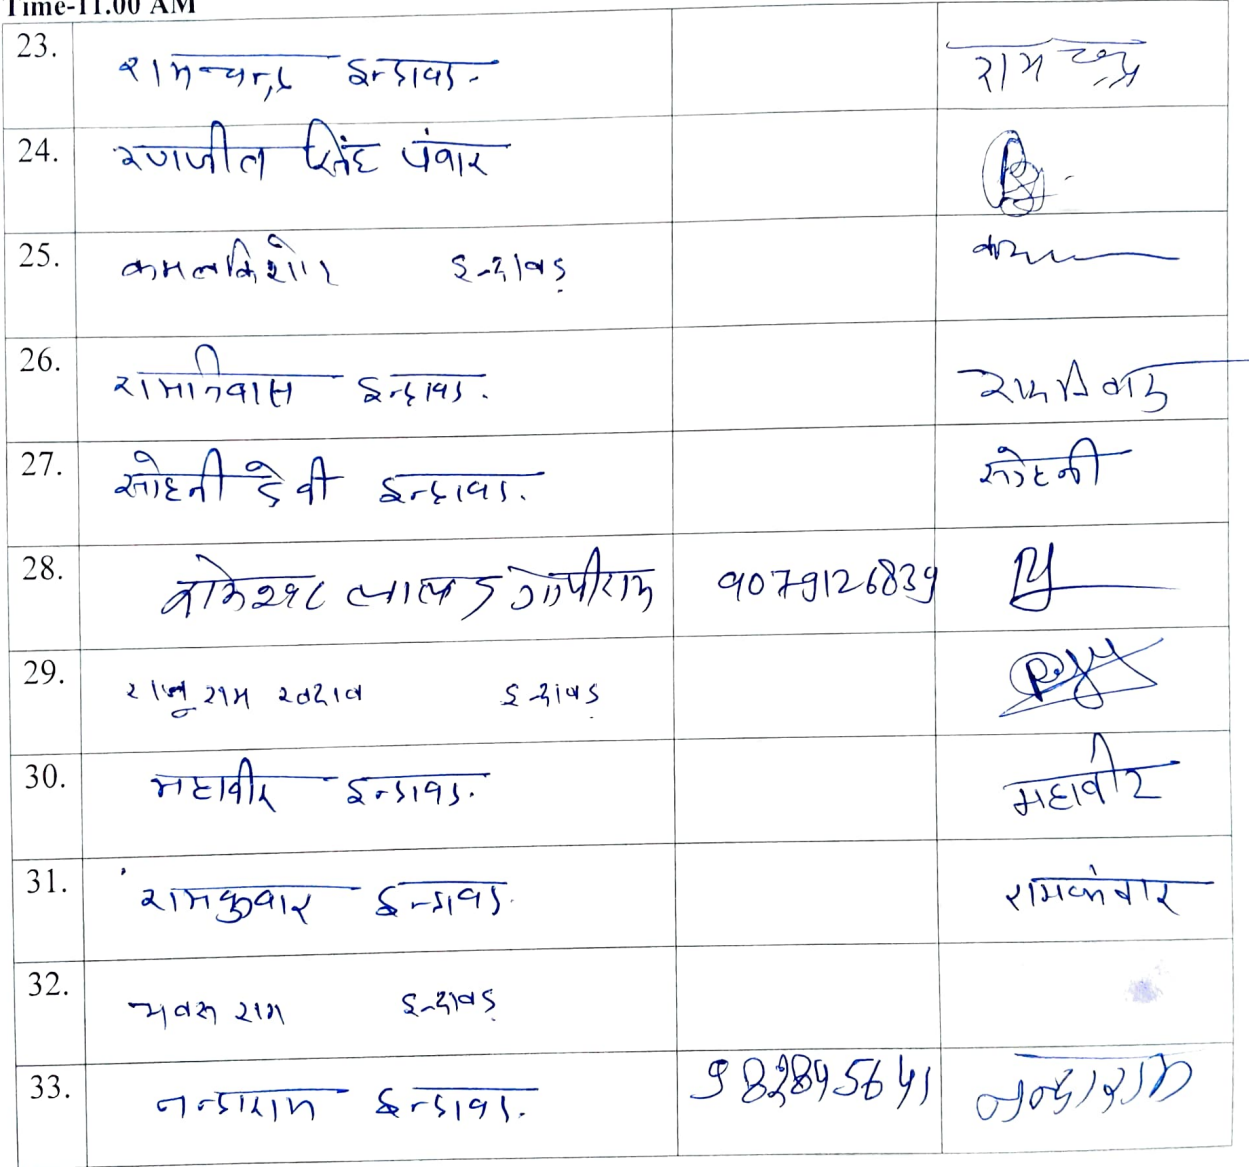 Time-11.00 AM
23. रामचन्द्र इन्डावड. रामचन्द्र
24. रणजीत सिंह पंवार
25. कमलकिशोर इन्दावड़
26. रामनिवास इन्दावड.
27. सोहनी देवी इन्दावड. सोहनी
28. लालड गोपीराम 9079126839
29. राजुराम इन्दावड़
30. महावीर इन्डावड. महावीर
31. रामकुवार इन्डावड. रामकंवार
32. राम इन्दावड़
33. नन्डाराम इन्डावड. 9828945641 नन्दाराम